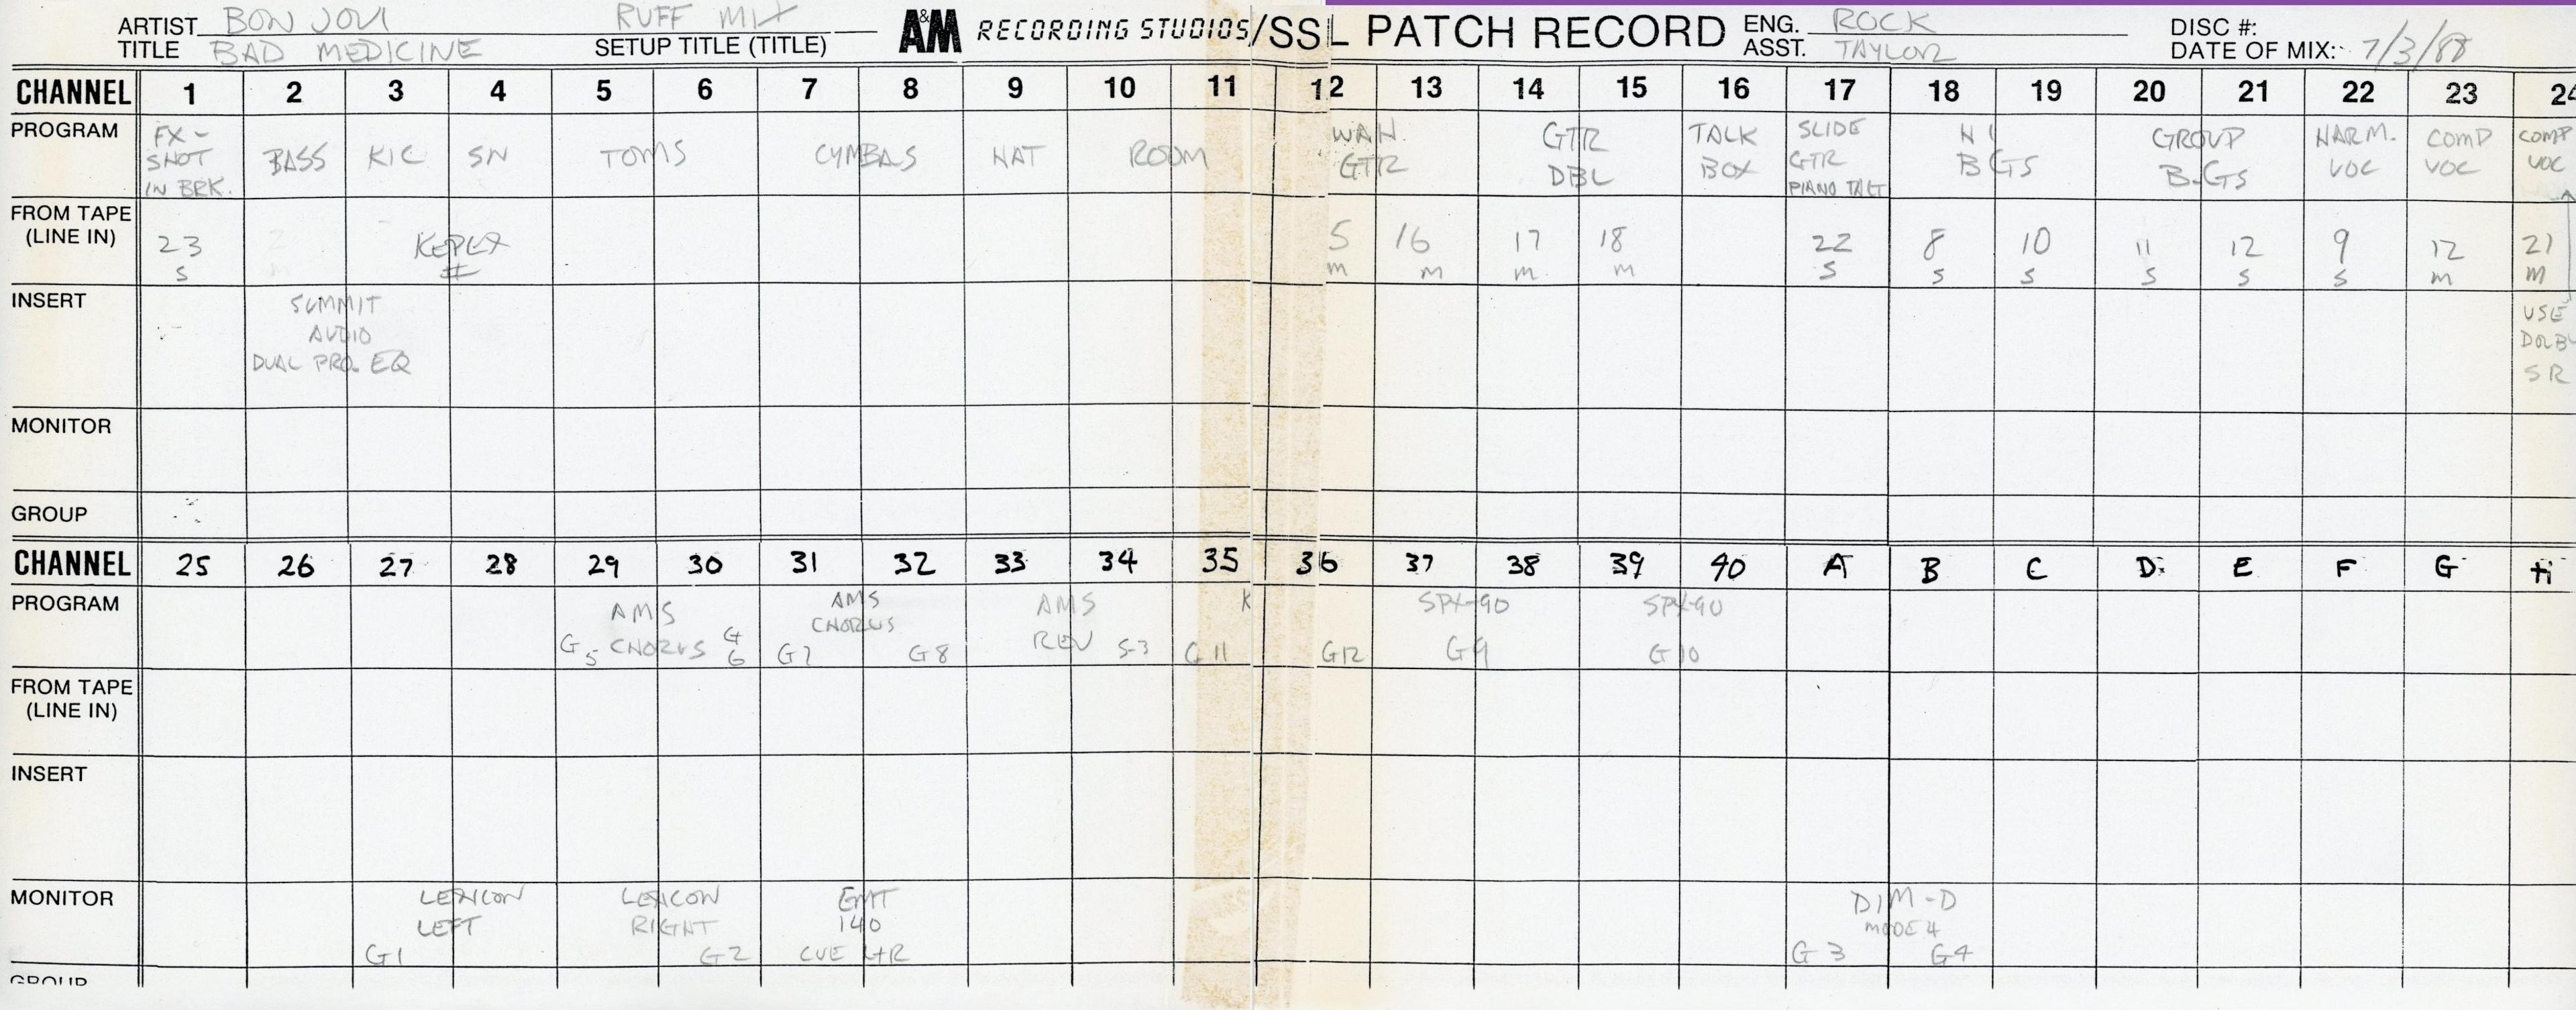 ARTIST BON JOVI RUFF MIX A&M RECORDING STUDIOS/SSL PATCH RECORD ENG. ROCK DISC #:
TITLE BAD MEDICINE SETUP TITLE (TITLE) ASST. TAYLOR DATE OF MIX: 7/3/88
CHANNEL 1 2 3 4 5 6 7 8 9 10 11 12 13 14 15 16 17 18 19 20 21 22 23 24
PROGRAM FX- WAH. GTR TALK SLIDE HI GROUP HARM. COMP COMP
SHOT BASS KIC SN TOMS CYMBAS HAT ROOM GTR DBL BOX GTR BGS B.GS VOC VOC VOC
IN BRK. PIANO
FROM TAPE
(LINE IN) 23 5 16 17 18 22 8 10 11 12 9 12 21
S # m m m. m S S S S S S m m
INSERT SUMMIT USE
AUDIO DOLBY
DUAL PRO. EQ SR
MONITOR
GROUP
CHANNEL 25 26 27 28 29 30 31 32 33 34 35 36 37 38 39 40 A B C D E F G H
PROGRAM AMS AMS AMS K SPX-90 SPX-90
CHORUS
G5 CHORUS G6 G7 G8 REV S-3 G11 G12 G9 G10
FROM TAPE
(LINE IN)
INSERT
MONITOR LEXICON LEXICON EMT DIM-D
LEFT RIGHT 140 MODE 4
G1 G2 CUE L+R G3 G4
GROUP